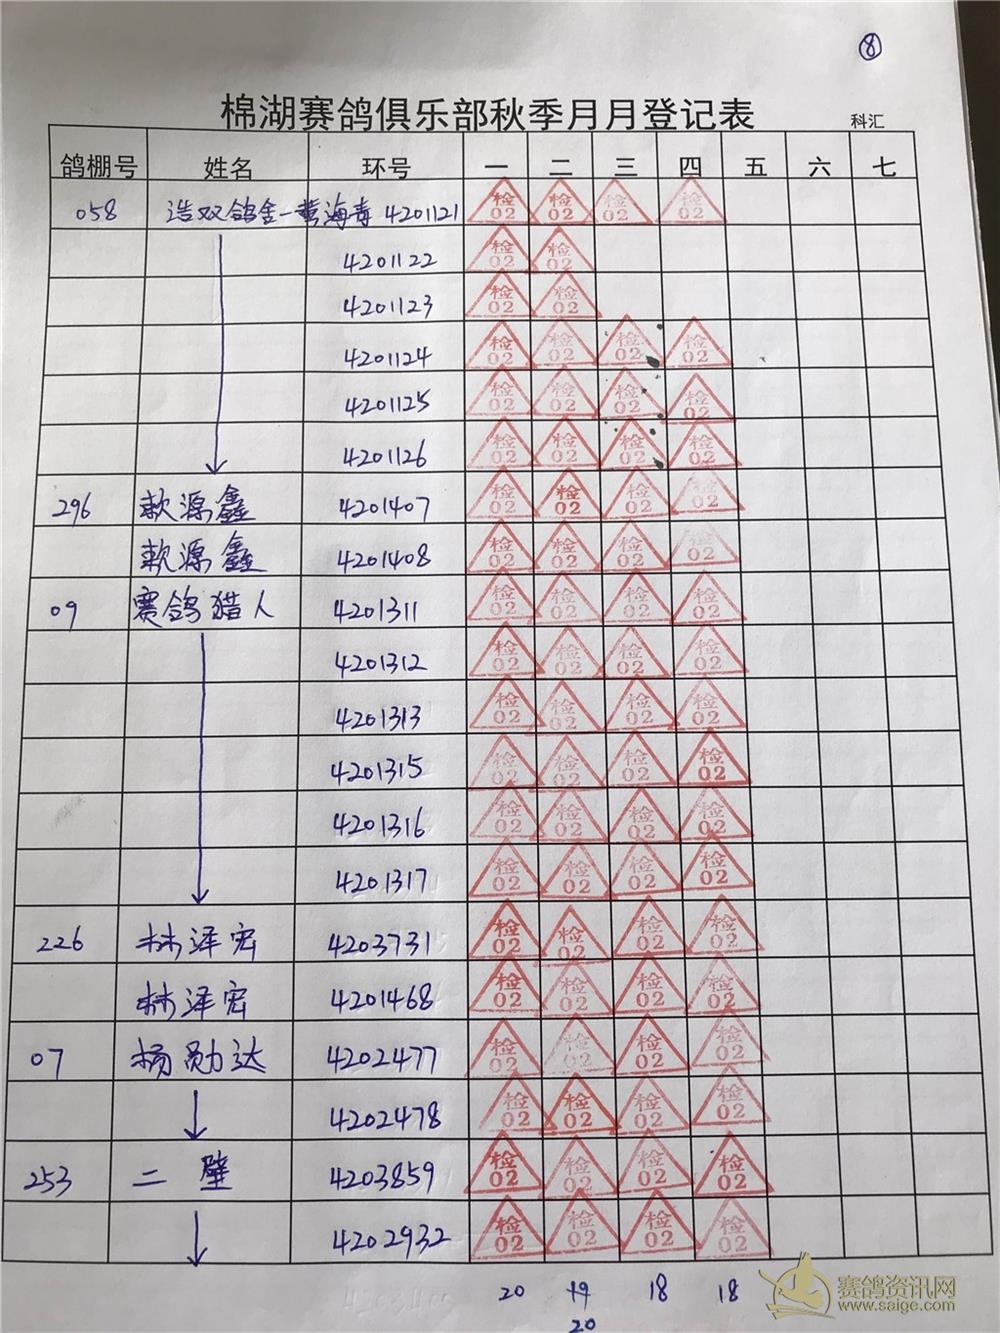 ⑧
棉湖赛鸽俱乐部秋季月月登记表 科汇
鸽棚号 姓名 环号 一 二 三 四 五 六 七
058 浩双鸽舍一黄海青 4201121 检02 检02 检02 检02
4201122 检02 检02
4201123 检02 检02
4201124 检02 检02 检02 检02
4201125 检02 检02 检02 检02
4201126 检02 检02 检02 检02
296 源鑫 4201407 检02 检02 检02 检02
源鑫 4201408 检02 检02 检02 02
09 赛鸽猎人 4201311 检02 检02 检02 检02
4201312 检02 检02 检02 检02
4201313 检02 检02 检02 检02
4201315 检02 检02 检02 检02
4201316 检02 检02 检02 检02
4201317 检02 检02 检02 检02
226 林泽宏 4203731 检02 检02 检02 检02
林泽宏 4201468 检02 检02 检02 检02
07 杨勋达 4202477 检02 检02 检02 检02
4202478 检02 检02 检02 检02
253 二璧 4203859 检02 检02 检02 检02
4202932 检02 检02 检02 检02
20 19 18 18
20
赛鸽资讯网
www.saige.com